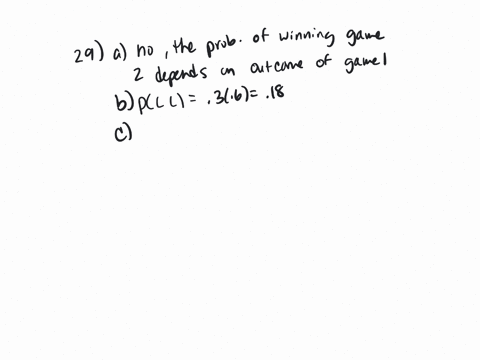 29) a) no, the prob. of winning game
2 depends on outcome of game 1
b) P(LL) = .3(.6) = .18
c)